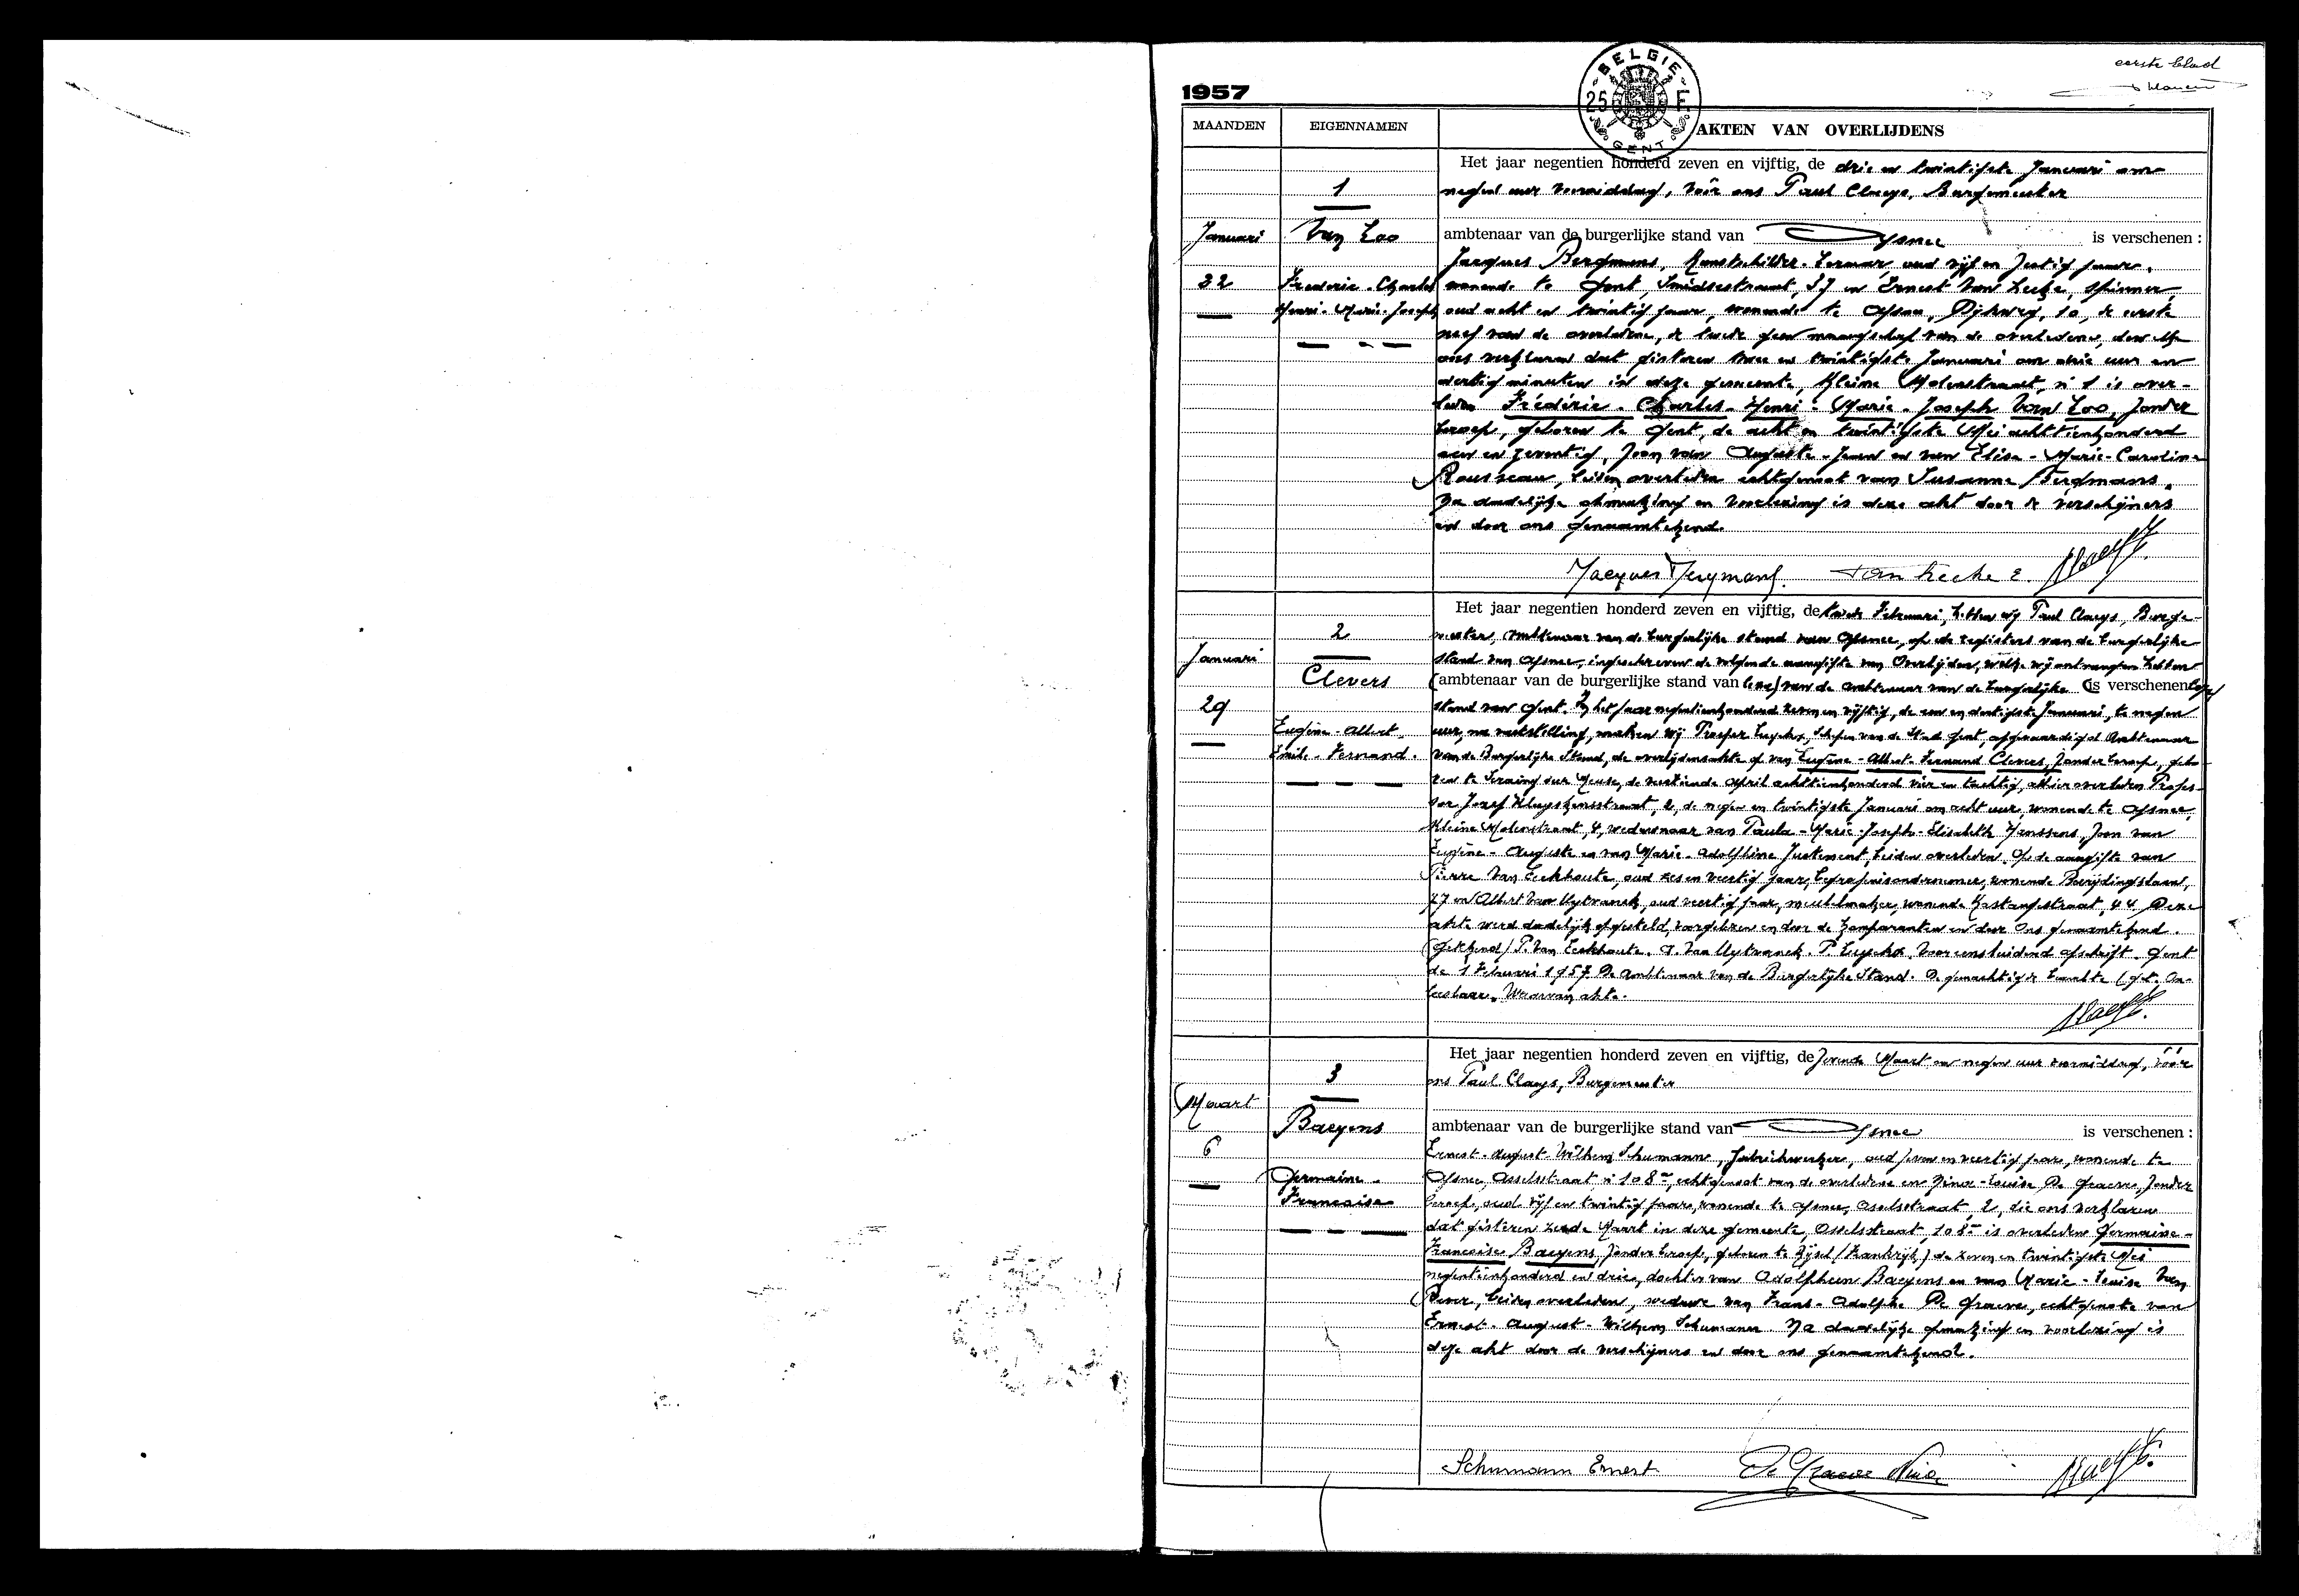 eerste blad
1957
BELGIE
25 F.
GENT
MAANDEN
EIGENNAMEN
AKTEN VAN OVERLIJDENS
Het jaar negentien honderd zeven en vijftig, de drie en twintigste Januari om
1
negen uur voormiddag, vóór ons Paul Claeys, Burgemeester
Januari
Van Loo
ambtenaar van de burgerlijke stand van Afsnee is verschenen :
Jacques Bergmans, Kunstschilder-Leraar, oud vijf en zestig jaar,
22
Frederic-Charles
wonende te Gent, Smidsestraat, en Ernest Van Hecke, spinner,
Henri-Marie-Joseph
oud acht en twintig jaar, wonende te Afsnee, Dijkweg, 10, de eerste
neef van de overledene, de tweede geen maagschap van de overledene, dewelke
ons verklaren dat gisteren twee en twintigste Januari om drie uur en
dertig minuten in deze gemeente, Kleine Molenstraat, n° 1 is over-
leden Frédéric-Charles-Henri-Marie-Joseph Van Loo, zonder
beroep, geboren te Gent, de acht en twintigste Mei achttienhonderd
een en zeventig, zoon van Auguste-Jean en van Elisa-Marie-Caroline
Rousseau, beiden overleden echtgenoot van Susanna Bergmans.
Na dadelijke opmaking en voorlezing is deze akt door de verschijners
en door ons genaamtekend.
Jacques Bergmans. Van Hecke E.
Het jaar negentien honderd zeven en vijftig, de tweede Februari, hebben wij Paul Claeys, Burge-
2
meester, ambtenaar van de burgerlijke stand van Afsnee, op de registers van de burgerlijke
Januari
stand van Afsnee, ingeschreven de volgende aangifte van Overlijden, welke wij ontvangen hebben
Clevers
(ambtenaar van de burgerlijke stand van van de ambtenaar van de burgerlijke (is verschenen
29
stand van Gent. In het jaar negentienhonderd zeven en vijftig, de een en dertigste Januari, te negen
Eugène-Albert-
uur, na vaststelling, maken wij Prosper Luyckx, Schepen van de Stad Gent, afgevaardigd Ambtenaar
Emile-Fernand.
van de Burgerlijke Stand, de overlijdensakte op van Eugène-Albert-Fernand Clevers, zonder beroep, gebo-
ren te Seraing sur Meuse, de veertiende April achttienhonderd vier en tachtig, alhier overleden Profes-
sor Jozef Kluyskensstraat, 2, de negen en twintigste Januari om acht uur, wonende te Afsnee,
Kleine Molenstraat, 4, weduwnaar van Paula-Marie-Joseph-Elisabeth Janssens, zoon van
Eugène-Auguste en van Marie-Adolphine Justement, beiden overleden. Op de aangifte van
Pierre Van Eeckhoute, oud zes en veertig jaar, begrafenisondernemer, wonende Bevrijdingslaan,
77 en Albert Van Uytvanck, oud veertig jaar, meubelmaker, wonende Kastanjestraat, 44. Deze
akte werd dadelijk opgesteld, voorgelezen en door de komparanten en door Ons genaamtekend.
(getekend) P. Van Eeckhoute. A. Van Uytvanck. P. Luyckx. Voor eensluidend afschrift. Gent
de 1 Februari 1957. De Ambtenaar van de Burgerlijke Stand. De gemachtigde beambte (get. On-
leesbaar. Waarvan akte.
Het jaar negentien honderd zeven en vijftig, de zevende Maart om negen uur voormiddag, vóór
3
ons Paul Claeys, Burgemeester
Maart
Baeyens
ambtenaar van de burgerlijke stand van Afsnee is verschenen :
6
Ernest-August-Wilhem Schumann, fabriekwerker, oud zeven en veertig jaar, wonende te
Germaine-
Afsnee, Asselsstraat n° 108, echtgenoot van de overledene en Nina-Louisa De Graeve, zonder
Francoise
beroep, oud vijf en twintig jaar, wonende te Afsnee, Asselsstraat, 2, die ons verklaren
dat gisteren zesde Maart in deze gemeente, Asselsstraat, 108 is overleden Germaine-
Francoise Baeyens, zonder beroep, geboren te Rijsel (Frankrijk) de zeven en twintigste Mei
negentienhonderd en drie, dochter van Adolpheen Baeyens en van Marie-Louise Van
Dever, beiden overleden, weduwe van Frans-Adolphe De Graeve, echtgenote van
Ernest-August-Wilhem Schumann. Na dadelijke opmaking en voorlezing is
deze akt door de verschijners en door ons genaamtekend.
Schumann Ernest De Graeve Nina